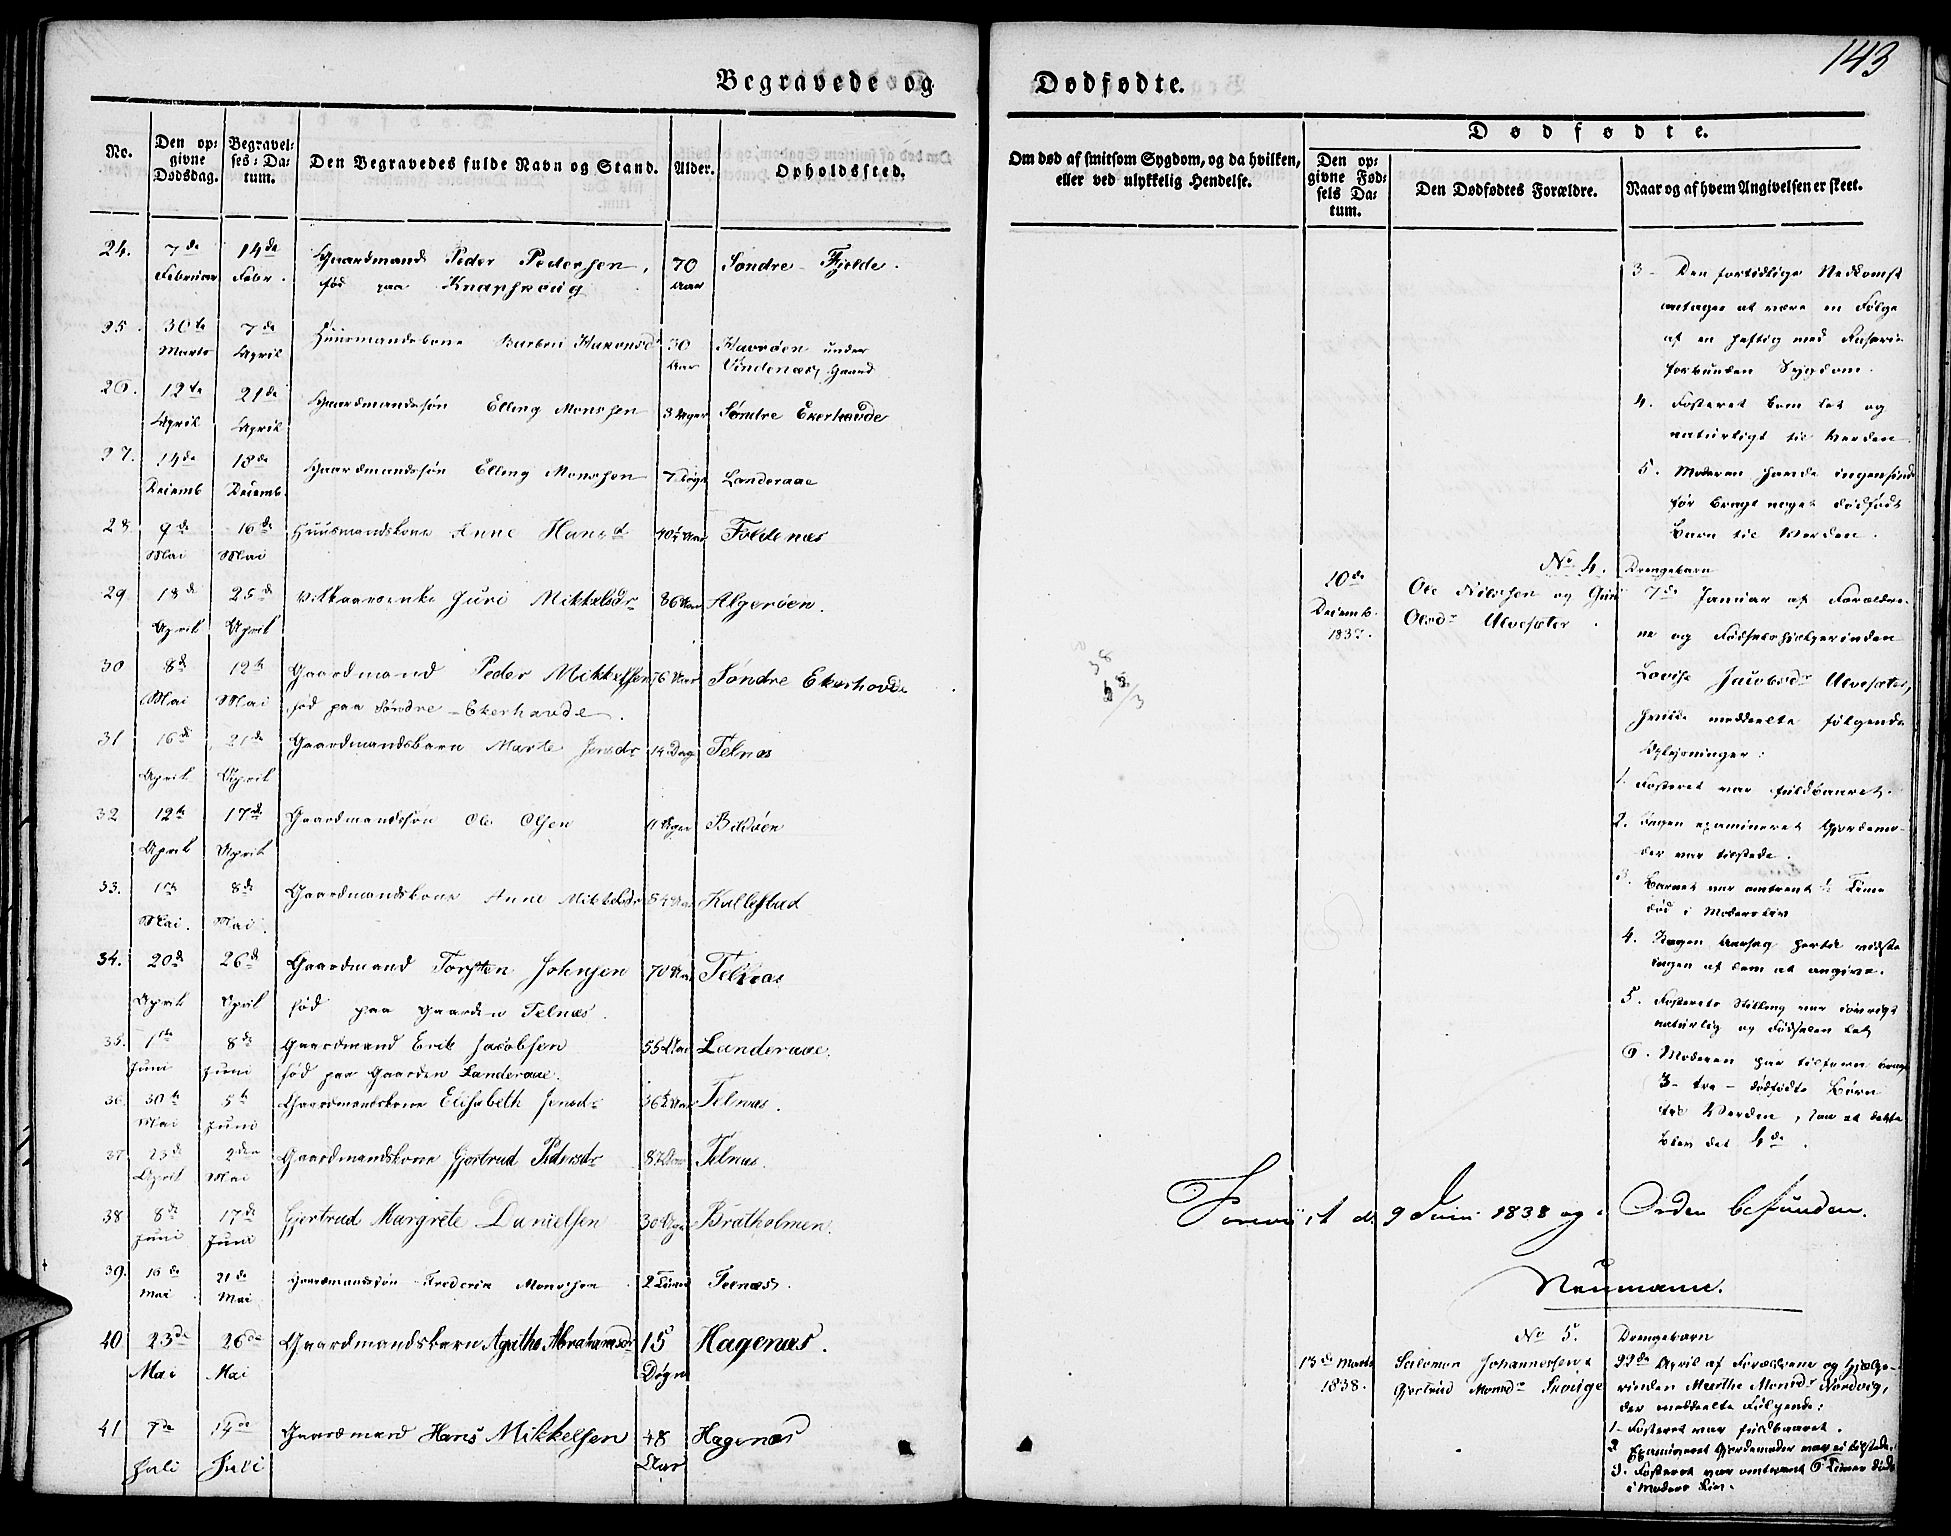 143
Begravede og Dødfødte.
No.
Den opgivne Dødsdag.
Begravelses-Datum.
Den Begravedes fulde Navn og Stand.
Alder.
Opholdssted.
Om død af smitsom Sygdom, og da hvilken, eller ved ulykkelig Hendelse.
Dødfødte.
Den opgivne Fødsels Datum.
Den Dødfødtes Forældre.
Naar og af hvem Angivelsen er skeet.
24. 7de Februar 14de Febr. Gaardmand Peder Pedersen, 70 Aar Søndre Fjelde.
fød paa Knapskoug
25. 30te Marts 7de April Huusmandskone Barbru Haconsd 30 Aar Kavrøen under
Vindenæs Gaard
26. 12te April 21de April Gaardmandssøn Elling Monsen 3 Uger Søndre Ekerhovde
27. 14de Decemb 18de Decemb. Gaardmandssøn Elling Monsen 7 Døgn Landeraae
28. 9de Mai 16de Mai Huusmandskone Anne Hansd 40½ Aar Foldenæs
29 18de April 25de April Vilkaarsenke Guri Mikkelsdr 86 Aar Algerøen.
30 8de Mai 12te Mai Gaardmand Peder Mikkelsen 76 Aar Søndre Ekerhovde
fød paa Søndre-Ekerhavde.
31 16de April 21de April Gaardmandsbarn Marte Jensdr 14 Dag Telnæs
32 12te April 17de April Gaardmandssøn Ole Olsen 11 Uger Bildøen
33. 1ste Mai. 8de Mai. Gaardmandskone Anne Mikkelsdr 54 Aar Kallestad
34. 20de April 26de April Gaardmand Torsten Johnsen 70 Aar Telnæs
fød paa Gaarden Telnæs.
35. 1ste Juni 8de Juni Gaardmand Erik Jacobsen 55 Aar Landeraae.
fød paa Gaarden Landeraae.
36. 30te Mai 5te Juni Gaardmandskone Elisabeth Jensdr 36½ Aar Telnæs.
37 25de April 2den Mai Gaardmandskone Gjertrud Pedersdr 87 Aar Telnæs.
38 8de Juni 17de Juni Gjertrud Margrete Danielsen 30 Uger Bratholmen.
39. 16de Mai 21de Mai Gaardmandssøn Frederik Monssen 2 Timer Telnæs.
40 23de Mai 26de Mai Gaardmandsbarn Agathe Abrahamsdr 15 Døgn Hagenæs.
41 7de Juli 14de Juli Gaardmand Hans Mikkelsen 48 Aar Hagenæs
3- Den fortidlige Nedkomst
antages at være en Følge
af en heftig med Raserie
forbunden Sygdom.
4. Fosteret kom let og
naturligt til Verden
5. Moderen havde ingensinde
før bragt noget dødfødt
Barn til Verden.
No 4. Drengebarn
10de Decemb. 1837. Ole Nilssen og Guri
Olsdr Ulvesæter.
7de Januar af Forældre-
ne og Fødselshjelperinden
Lovise Jacobsdr Ulvesæter,
hvilke meddeelte følgende
Oplysninger:
1. Fosteret var fuldbaaret.
2. Ingen examineret Gjordemo-
der var tilstede.
3. Barnet var omtrent ½ Time
død i Modersliv
4. Nogen Aarsag hertil vidste
ingen af dem at angive.
5. Fosterets Stilling var iøvrigt
naturlig og Fødselen let
6. Moderen har tilforn bragt
3- tre - dødfødte Børn
til Verden, saa at dette
blev det 4de.
Foreviist d. 9 Juni 1838 og i Orden befunden.
Neumann.
No 5. Drengebarn
13de Marts 1838. Salomon Johannessen &
Gjertrud Monsdr Skouge
29de April af Forældrene og Hjelpe-
rinden Marthe Monsdr Nordvig,
der meddeelte Følgende:
1- Fosteret var fuldbaaret.
2 Examineret Gjordemoder var ei tilstede.
3. Fosteret var omtrent 6 Timer død
i Moders Liv.